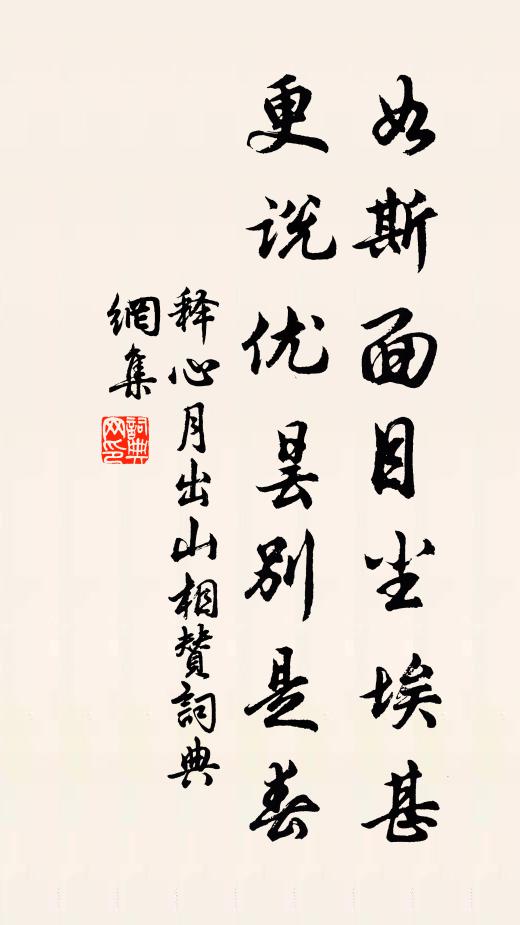 如斯面目尘埃甚
更说优昙别是春
释心月出山相赞詞典
網集
詞典網印